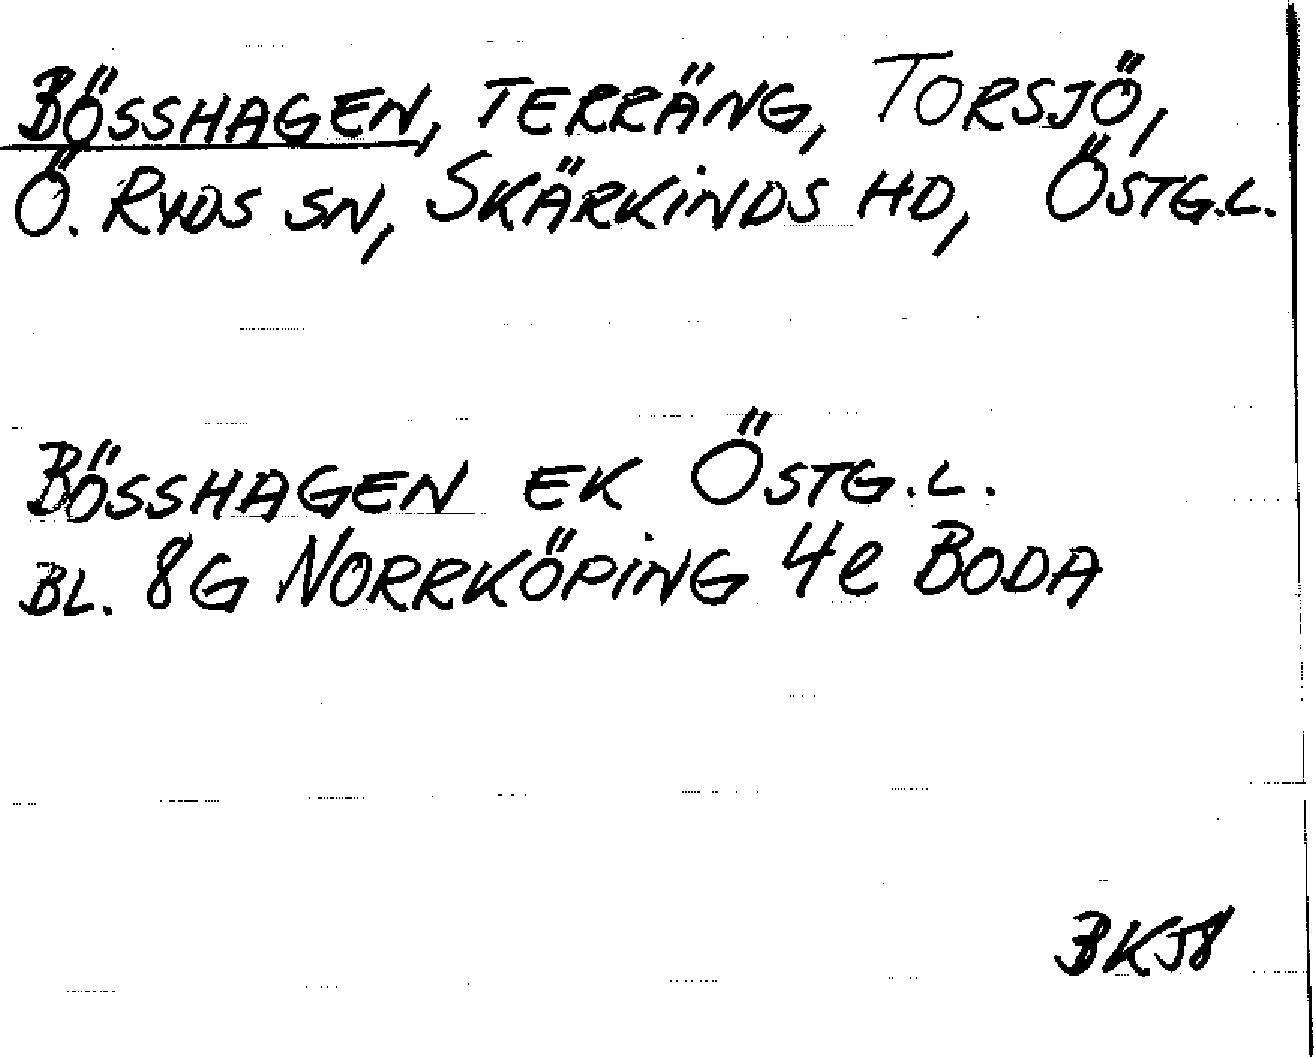 BÖSSHAGEN, TERRÄNG, TORSJÖ,
Ö. RYDS SN, SKÄRKINDS HD, ÖSTG.L.
BÖSSHAGEN EK ÖSTG.L.
BL. 8G NORRKÖPING 4e BODA